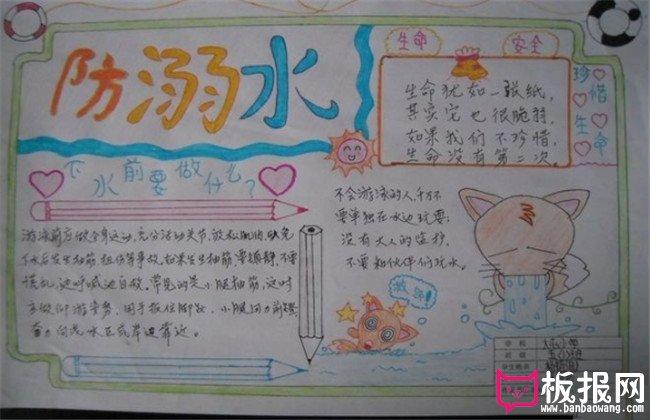 防溺水
生命
安全
生命犹如一张纸,
其实它也很脆弱,
如果我们不珍惜,
生命没有第二次。
珍惜生命
下水前要做什么?
游泳前应做全身运动,充分活动关节,放松肌肉,以免
下水后发生抽筋、扭伤等事故。如果发生抽筋,要镇静,不要
慌乱,边呼喊边自救。常见的是小腿抽筋,这时
应做仰游姿势,用手扳住脚趾,小腿用力前蹬,
奋力向浅水区或岸边靠近。
不会游泳的人,千万不
要单独在水边玩耍;
没有大人的监护,
不要和伙伴们玩水。
救命!
学校
班级
学生姓名
板报网
www.banbaowang.com